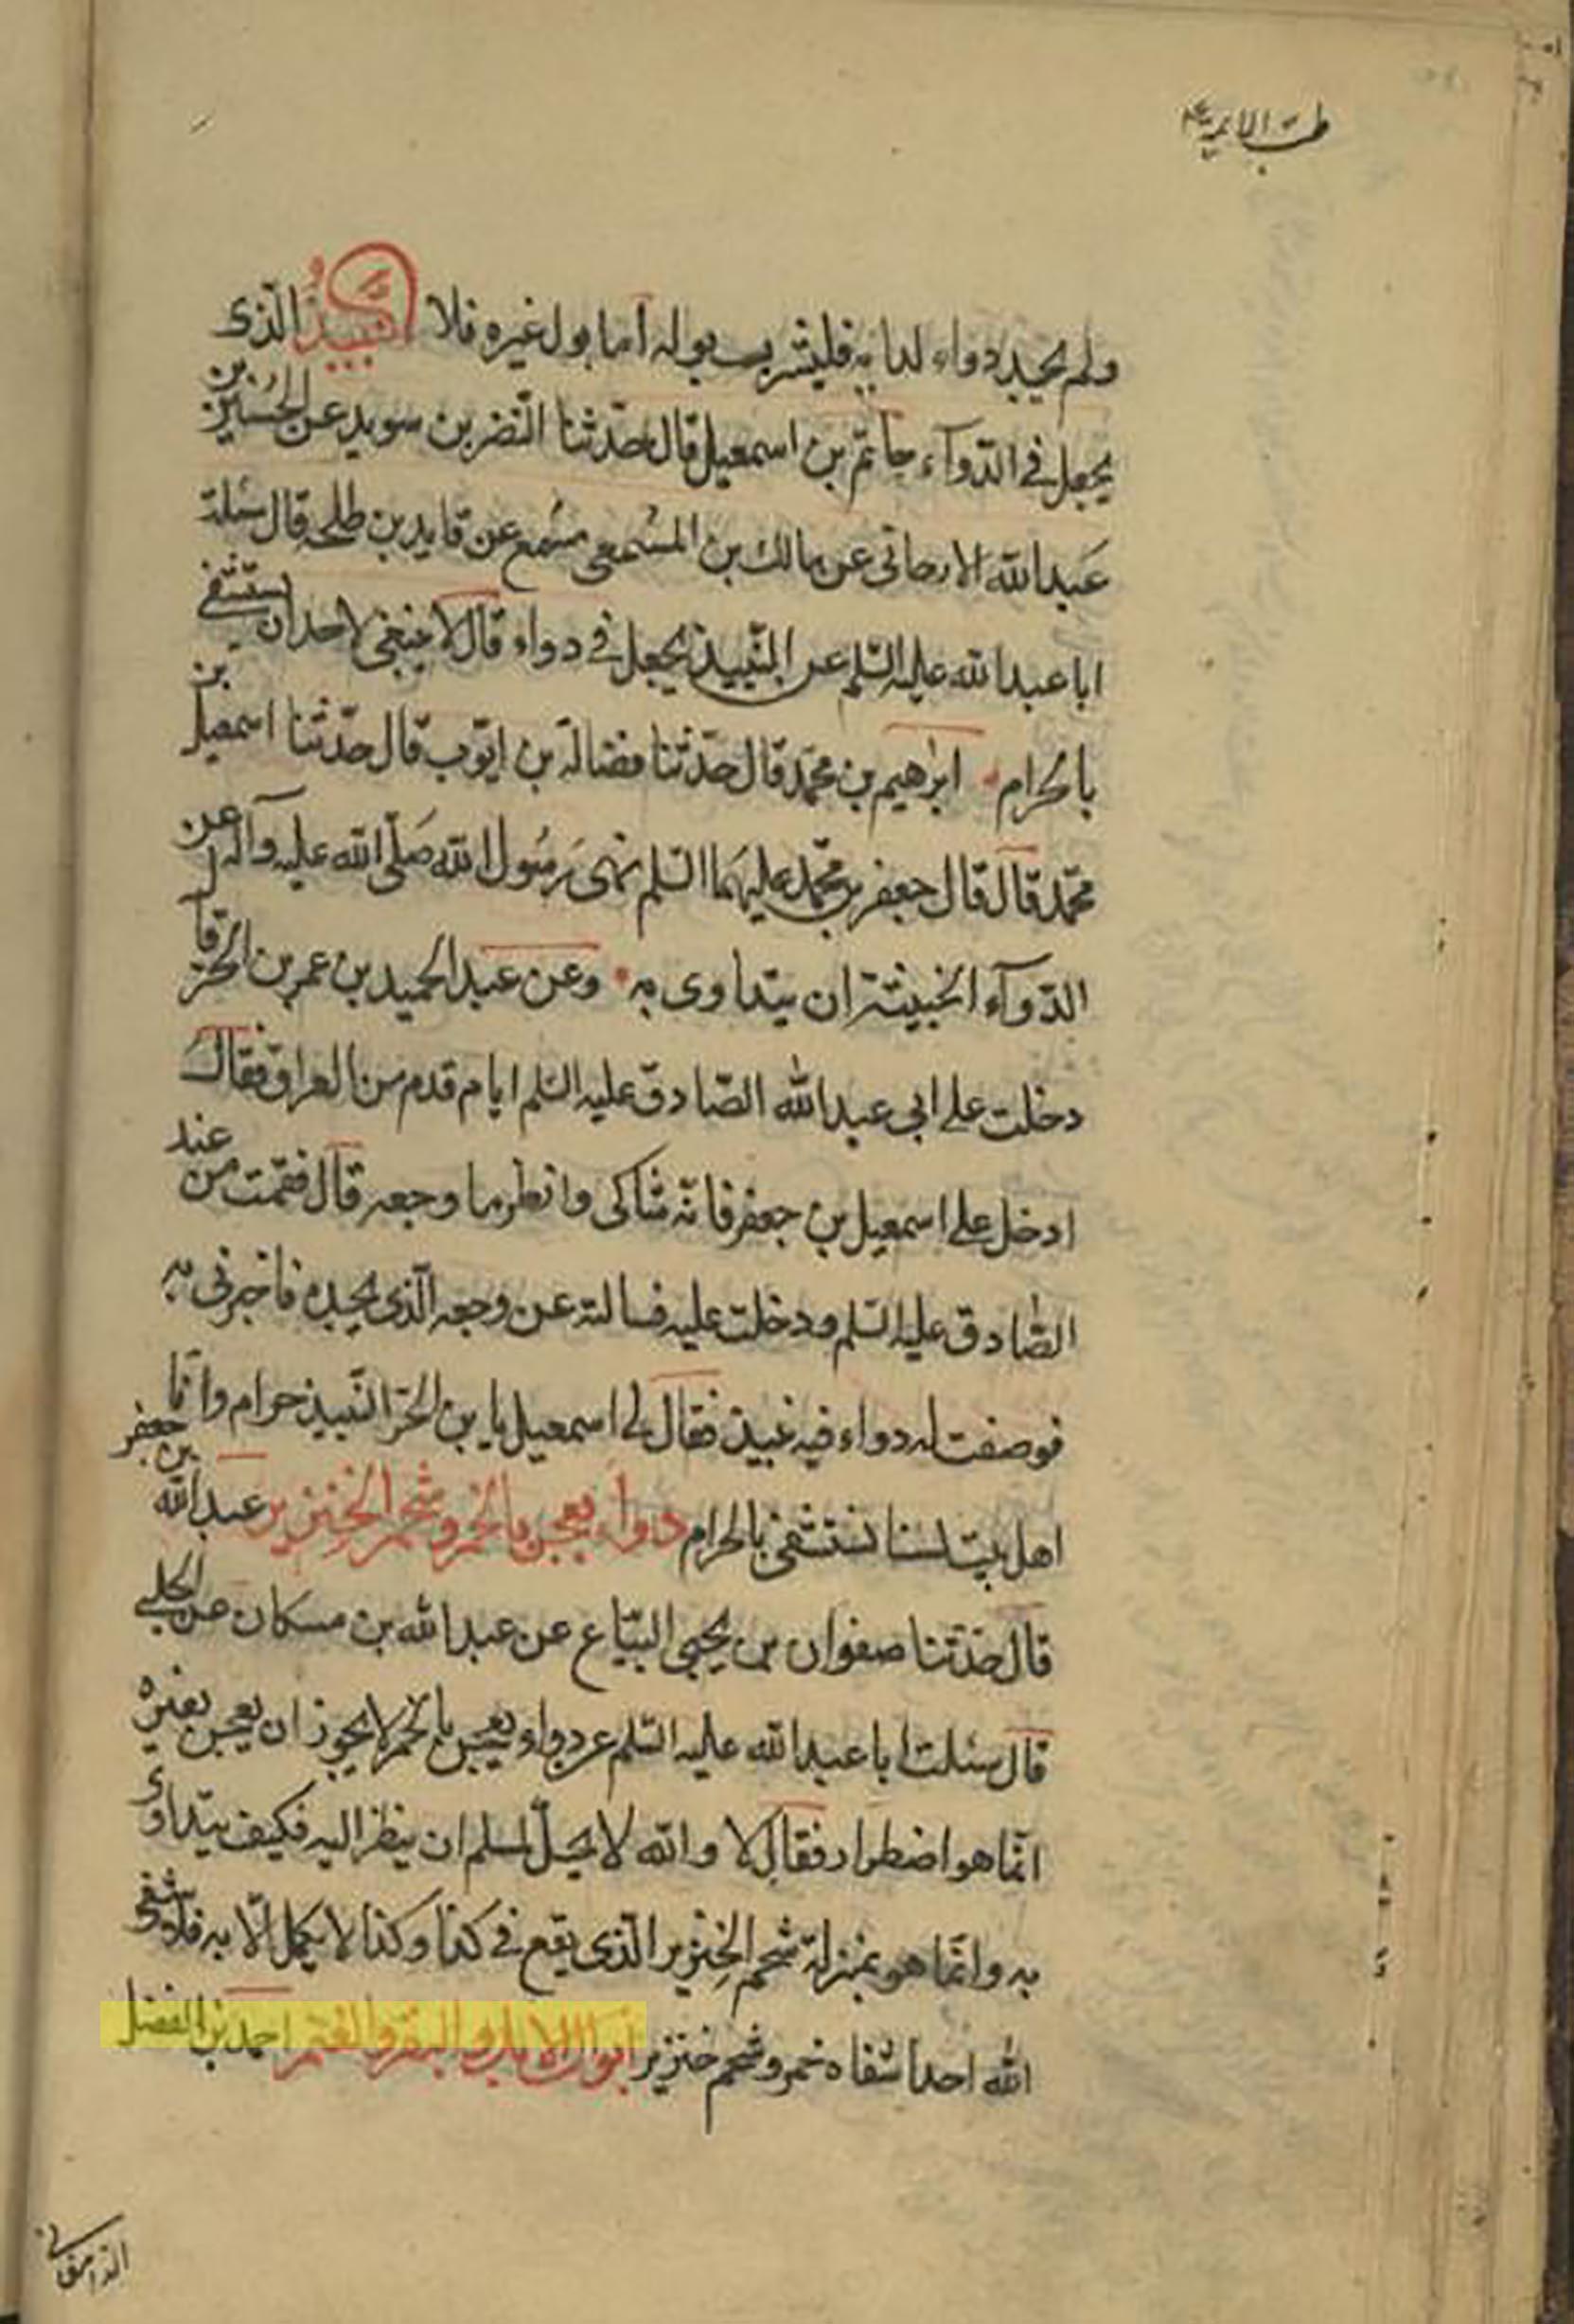 طب الائمة
ولم يجد دواء لدائه فليشرب بوله اما بول غيره فلا النبيذ الذى
يجعل فى الدوآء حاتم بن اسمعيل قال حدثنا النضر بن سويد عن الحسين بن
عبد الله الارجانى عن مالك بن المسمعى مسمع عن قايد بن طلحه قال سئلت
ابا عبد الله عليه السلم عن النبيذ يجعل فى دواء قال لا ينبغى لاحد ان يستشفى
بالحرام ابرهيم بن محمد قال حدثنا فضالة بن ايوب قال حدثنا اسمعيل بن
محمد قال قال جعفر بن محمد عليهما السلم نهى رسول الله صلى الله عليه وآله عن
الدوآء الخبيثة ان يتداوى به وعن عبد الحميد بن عمر بن الحر قال
دخلت على ابى عبد الله الصادق عليه السلم ايام قدم من العراق فقال
ادخل على اسمعيل بن جعفر فانه شاكى وانظر ما وجعه قال فقمت من عند
الصادق عليه السلم ودخلت عليه فسالته عن وجعه الذى يجده فاخبرنى به
فوصفت له دواء فيه نبيذ فقال لى اسمعيل يا بن الحر النبيذ حرام وانا
اهل بيت لسنا نستشفى بالحرام دواء يعجن بالخمر وشحم الخنزير عبد الله بن جعفر
قال حدثنا صفوان بن يحيى البياع عن عبد الله بن مسكان عن الحلبى
قال سئلت ابا عبد الله عليه السلم عن دواء يعجن بالخمر لا يجوز ان يعجن بغيره
انما هو اضطرار فقال لا والله لا يحل لمسلم ان ينظر اليه فكيف يتداوى
به وانما هو بمنزلة شحم الخنزير الذى يقع فى كذا وكذا لا يكمل الا به فلا شفى
الله احدا شفاه خمر وشحم خنزير ابوال الابل والبقر والغنم احمد بن الفضل
الدامغانى